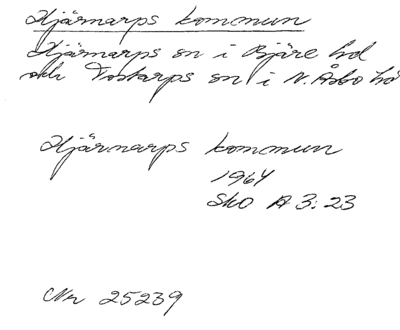 Hjärnarps kommun
Hjärnarps sn i Bjäre hd
och Tostarps sn i N. Åsbo hd
Hjärnarps kommun
1964
SkO A 3:23
Nr 25239